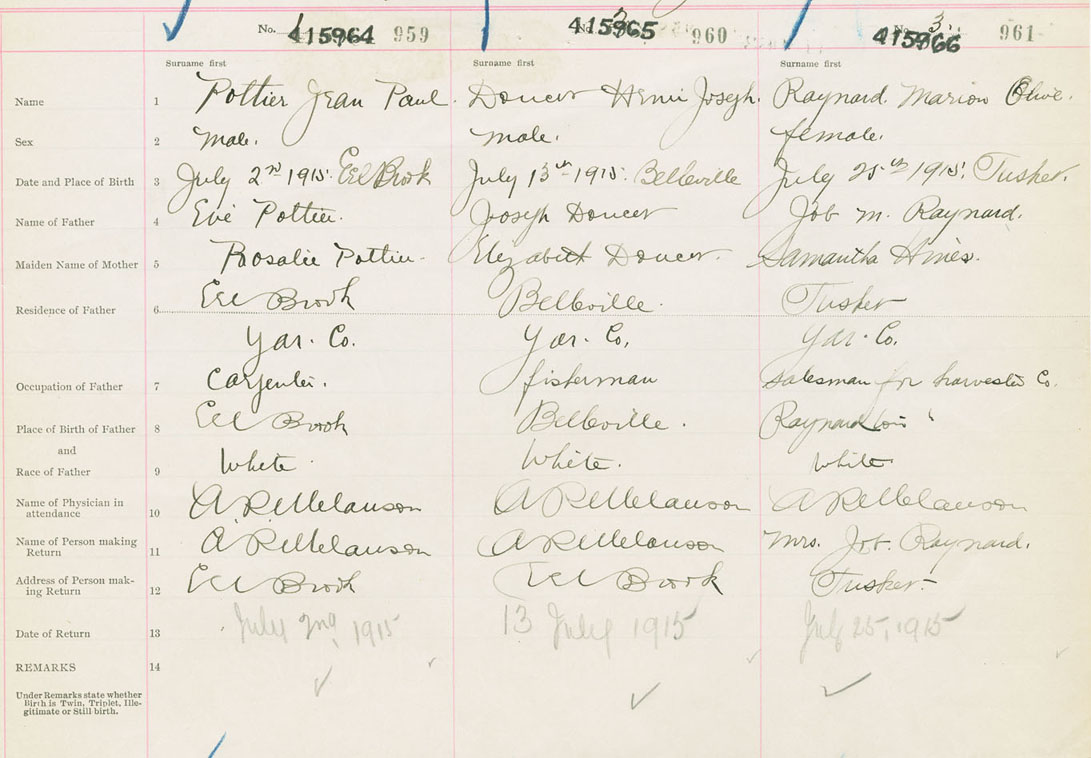 No. 1 415964 959 No. 2 415965 960 No. 3 415966 961
Surname first Surname first Surname first
Name 1 Pottier Jean Paul. Doucet Henri Joseph. Raynard. Marion Olive.
Sex 2 Male. male. female.
Date and Place of Birth 3 July 2nd 1915. Eel Brook July 13th 1915. Belleville July 25th 1915. Tusket.
Name of Father 4 Evé Pottier. Joseph Doucet Job M. Raynard.
Maiden Name of Mother 5 Rosalie Pottier. Elizabeth Doucet. Samantha Hines.
Residence of Father 6 Eel Brook Belleville. Tusket
Yar. Co. Yar. Co. Yar. Co.
Occupation of Father 7 Carpenter. fisherman salesman for harvester Co.
Place of Birth of Father 8 Eel Brook Belleville. Raynard
and
Race of Father 9 White. White. White
Name of Physician in
attendance 10 A R Melanson A R Melanson A R Melanson
Name of Person making
Return 11 A. R Melanson A R Melanson Mrs. Job. Raynard.
Address of Person mak-
ing Return 12 Eel Brook Eel Brook Tusket.
Date of Return 13 July 2nd 1915 13 July 1915 July 25, 1915
REMARKS 14
Under Remarks state whether
Birth is Twin, Triplet, Ille-
gitimate or Still birth.